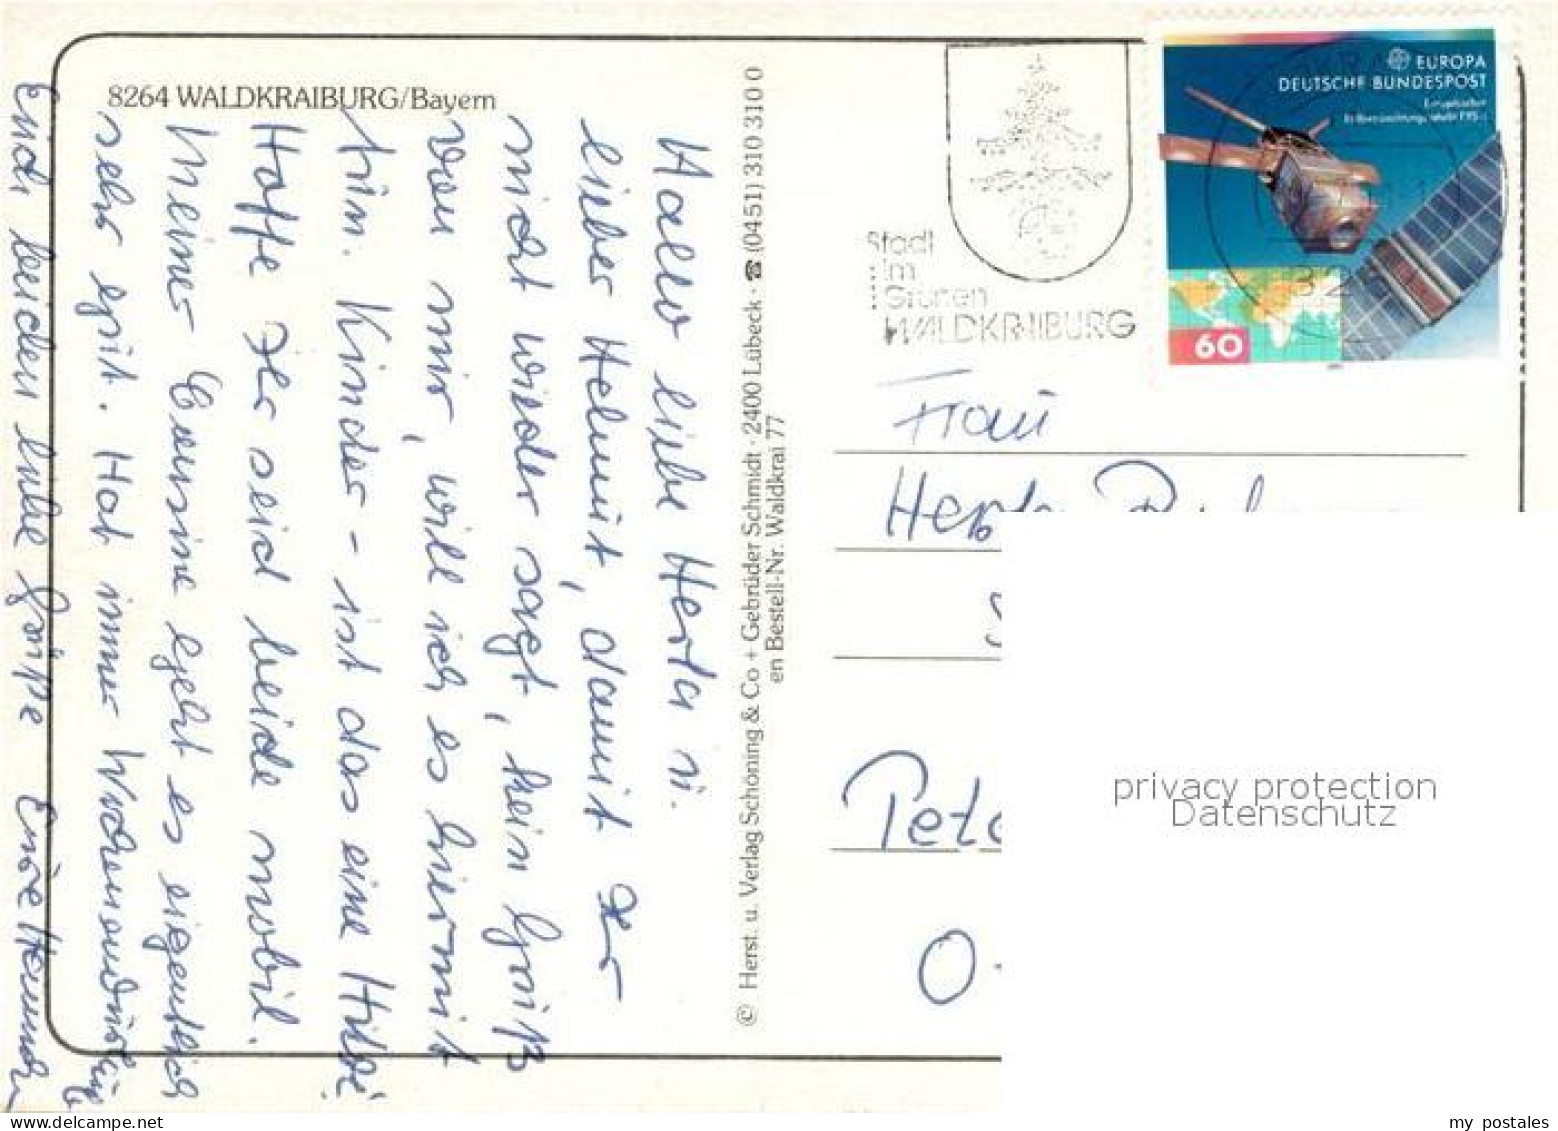 8264 WALDKRAIBURG/Bayern
Hallo liebe Herta u.
lieber Helmut, damit Ihr
nicht wieder sagt, kein Gruß
von mir, will ich es hiermit
tun. Kinder - ist das eine Hitze
Hoffe Ihr seid beide mobil.
Meiner Cousine geht es eigentlich
sehr gut. Hat immer
Euch beiden liebe Grüße Eure
© Herst. u. Verlag Schöning & Co + Gebrüder Schmidt · 2400 Lübeck · ☎ (0451) 310 310 0
en Bestell-Nr. Waldkrai 77
Stadt
im
Grünen
WALDKRAIBURG
EUROPA
DEUTSCHE BUNDESPOST
60
Frau
Herta
Pete
O.
privacy protection
Datenschutz
my postales